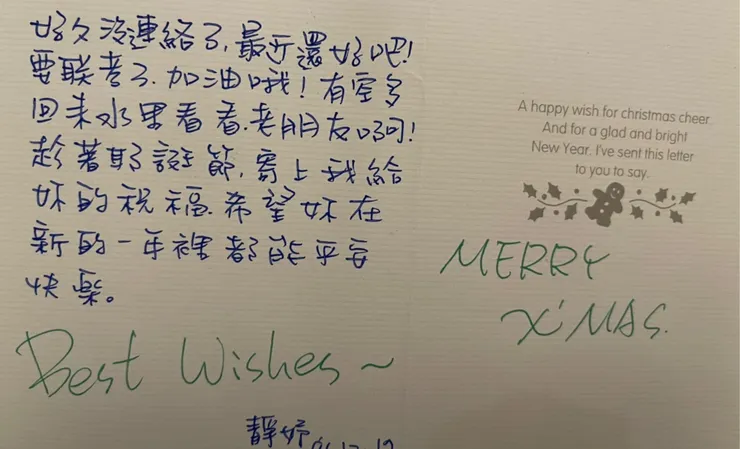 好久沒連絡了,最近還好吧!
要聯考了.加油哦!有空多
回來水里看看.老朋友呵!
趁著耶誕節,寄上我給
妳的祝福.希望妳在
新的一年裡都能平安
快樂。
Best Wishes~
靜妤
A happy wish for christmas cheer.
And for a glad and bright
New Year. I've sent this letter
to you to say.
MERRY
X'MAS.